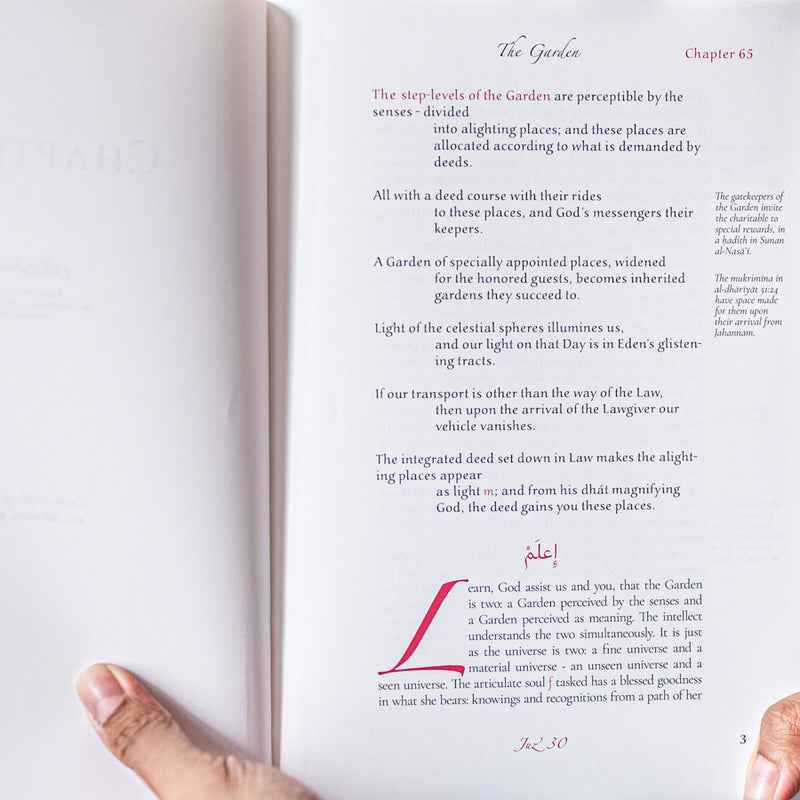 The Garden
Chapter 65
The step-levels of the Garden are perceptible by the
senses - divided
into alighting places; and these places are
allocated according to what is demanded by
deeds.
All with a deed course with their rides
to these places, and God's messengers their
keepers.
A Garden of specially appointed places, widened
for the honored guests, becomes inherited
gardens they succeed to.
Light of the celestial spheres illumines us,
and our light on that Day is in Eden's glisten-
ing tracts.
If our transport is other than the way of the Law,
then upon the arrival of the Lawgiver our
vehicle vanishes.
The integrated deed set down in Law makes the alight-
ing places appear
as light m; and from his dhát magnifying
God, the deed gains you these places.
The gatekeepers of
the Garden invite
the charitable to
special rewards, in
a ḥadīth in Sunan
al-Nasā'ī.
The mukrimīna in
al-dhāriyāt 51:24
have space made
for them upon
their arrival from
Jahannam.
إِعلَمْ
Learn, God assist us and you, that the Garden
is two: a Garden perceived by the senses and
a Garden perceived as meaning. The intellect
understands the two simultaneously. It is just
as the universe is two: a fine universe and a
material universe - an unseen universe and a
seen universe. The articulate soul f tasked has a blessed goodness
in what she bears: knowings and recognitions from a path of her
Juz' 30
3